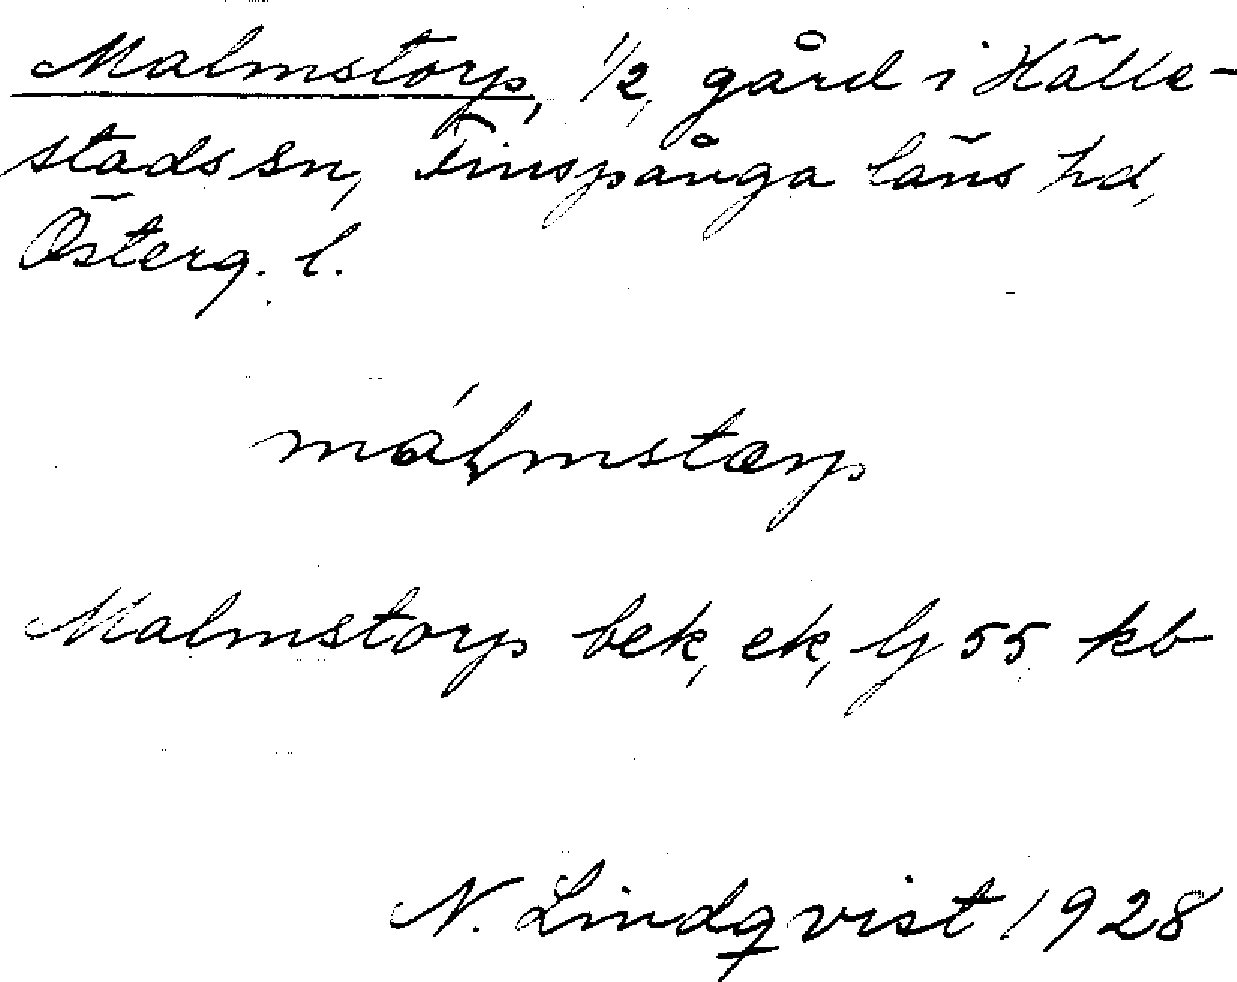 Malmstorp, 1/2, gård i Hälle-
stads sn, Finspånga läns hd,
Österg. l.
málmstorp
Malmstorp bek, ek, Gj 55 kb
N. Lindqvist 1928